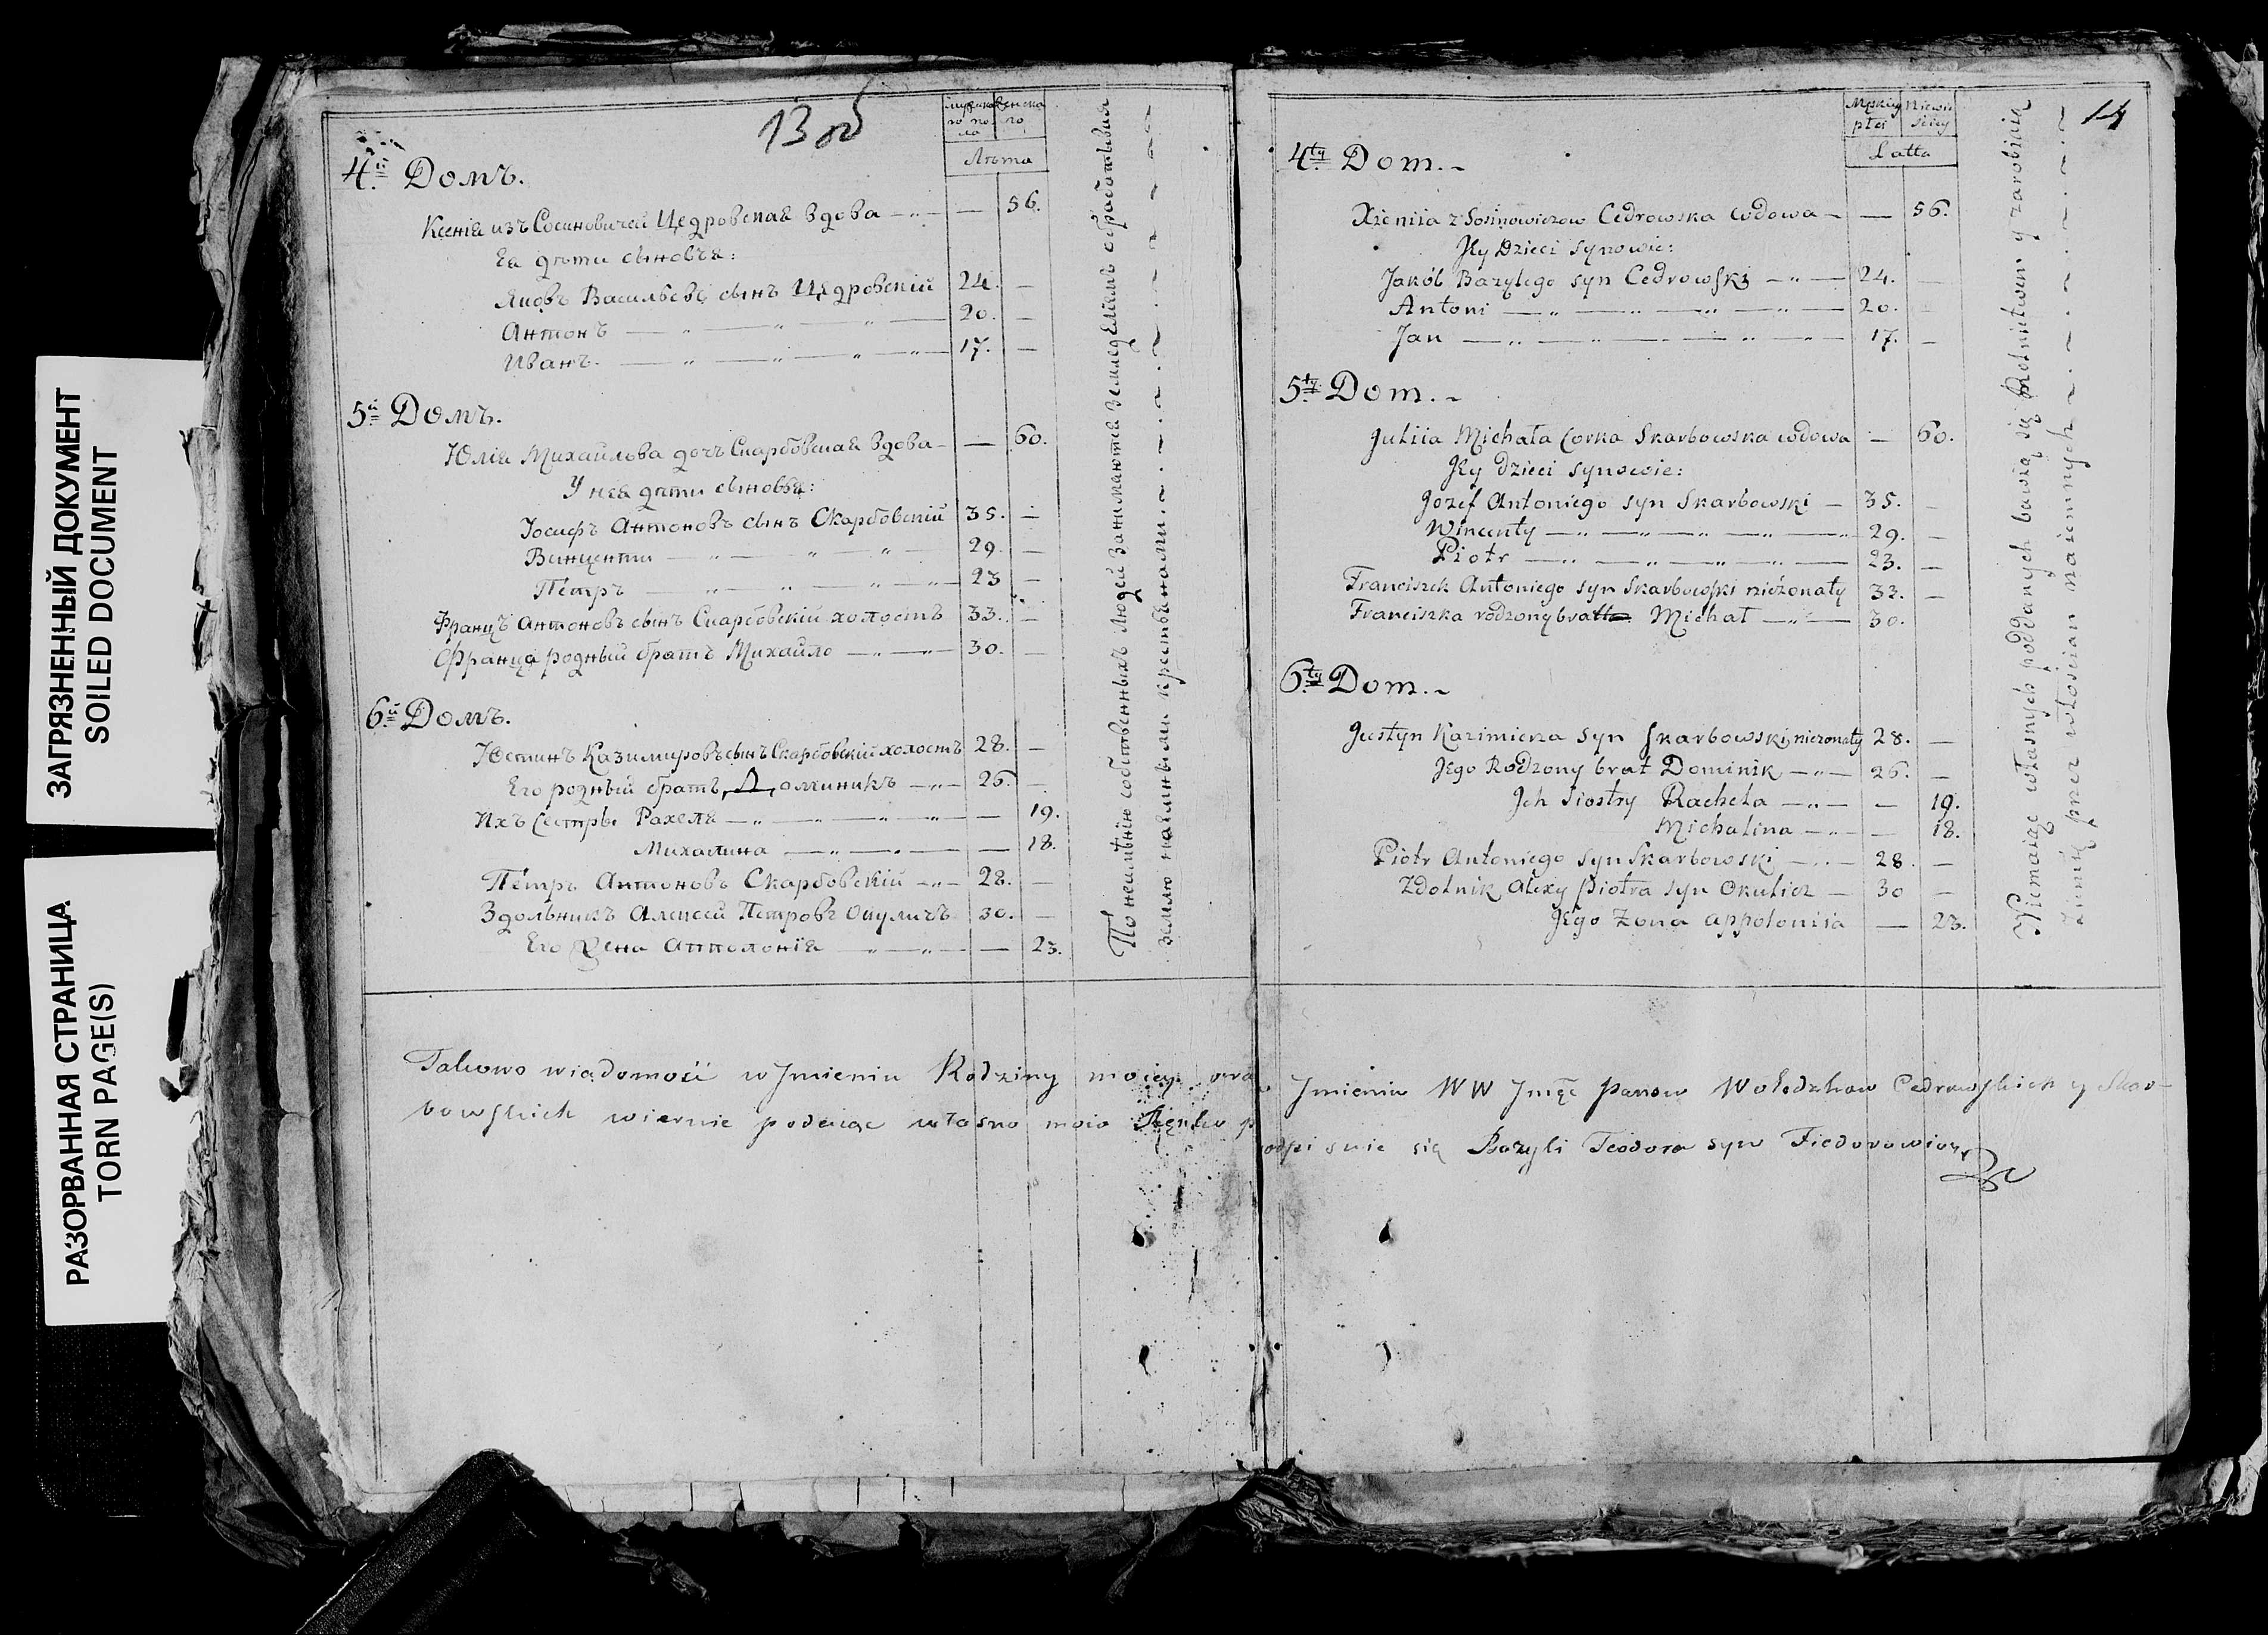 ЗАГРЯЗНЕННЫЙ ДОКУМЕНТ
SOILED DOCUMENT
РАЗОРВАННАЯ СТРАНИЦА
TORN PAGE(S)
13 об
мужска женска
го по го
ла
Лѣта
4й Домъ.
Ксенія изъ Сосиновичей Цедровская вдова — „ — — 56.
Ея дѣти сыновья:
Яковъ Васильевъ сынъ Цедровскій 24. —
Антонъ — „ — „ — „ — 20. —
Иванъ. — „ — „ — „ — „ — 17. —
5й Домъ.
Юлія Михайлова дочь Скарбовская вдова — — 60.
У нея дѣти сыновья:
Іосифъ Антоновъ сынъ Скарбовскій 35. —
Винценти — „ — „ — „ — 29. —
Пётръ — „ — „ — „ — „ — 23 —
Францъ Антоновъ сынъ Скарбовскій холостъ 33. —
Франца родный братъ Михайло — „ — „ — 30. —
6й Домъ.
Юстинъ Казимировъ сынъ Скарбовскій холостъ 28. —
Его родный братъ Доминикъ — „ — 26. —
Ихъ сестры Рахеля — „ — „ — „ — „ — — 19.
Михалина — „ — „ — — 18.
Пётръ Антоновъ Скарбовскій — „ — 28. —
Здольникъ Алексей Петровъ Окуличъ 30. —
Его Жена Апполонія — „ — „ — — 23.
По неимѣнію собственныхъ людей занимаются земледѣліемъ обработывая
землю наёмными крестьянами.
14
Męskiey Niewie
płci sciey
Latta
4ty Dom.
Xieniia z Sosinowiczow Cedrowska wdowa — — 56.
Jey Dzieci synowie:
Jakób Bazylego syn Cedrowski — „ — 24. —
Antoni — „ — „ — „ — „ — 20. —
Jan — „ — „ — „ — „ — 17. —
5ty Dom.
Juliia Michała Corka Skarbowska wdowa — 60.
Jey dzieci synowie:
Jozef Antoniego syn Skarbowski — 35. —
Wincenty — „ — „ — „ — „ — 29. —
Piotr — „ — „ — „ — „ — 23. —
Franciszek Antoniego syn Skarbowski nieżonaty 33. —
Franciszka rodzony brat Michał — „ — 30.
6ty Dom.
Justyn Kazimierza syn Skarbowski nieżonaty 28. —
Jego Rodzony brat Dominik — „ — 26. —
Jch Siostry Rachela — „ — — 19.
Michalina — „ — — 18.
Piotr Antoniego syn Skarbowski — „ — 28. —
Zdolnik Alexy Piotra syn Okulicz — 30 —
Jego Zona Appoloniia — 23.
Niemaiąc własnych poddanych bawią się Rolnictwem y zarobieniu
ziemię przez włoscian naiemnych
Takowo wiadomość w Jmieniu Rodziny moiey oraz Jmieniu WW Jmęć Panow Wołodzkow Cedrowskich y Skar-
bowskich wiernie podaiąc własno moio Ręnko podpisuie się Bazyli Teodora syn Fiedorowicz